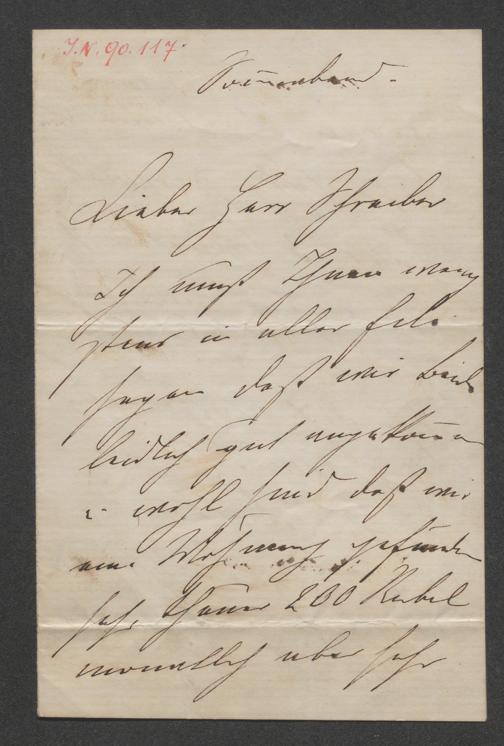 J.N. 90.117.
Sonnabend.
Lieber Herr Schreiber
Ich muß Ihnen wenig
stens in aller Eile
sagen daß wir beide
leidlich gut angekommen
u wohl sind daß wir
eine Wohnung gefunden
sehr theuer 200 Rubel
monatlich aber sehr